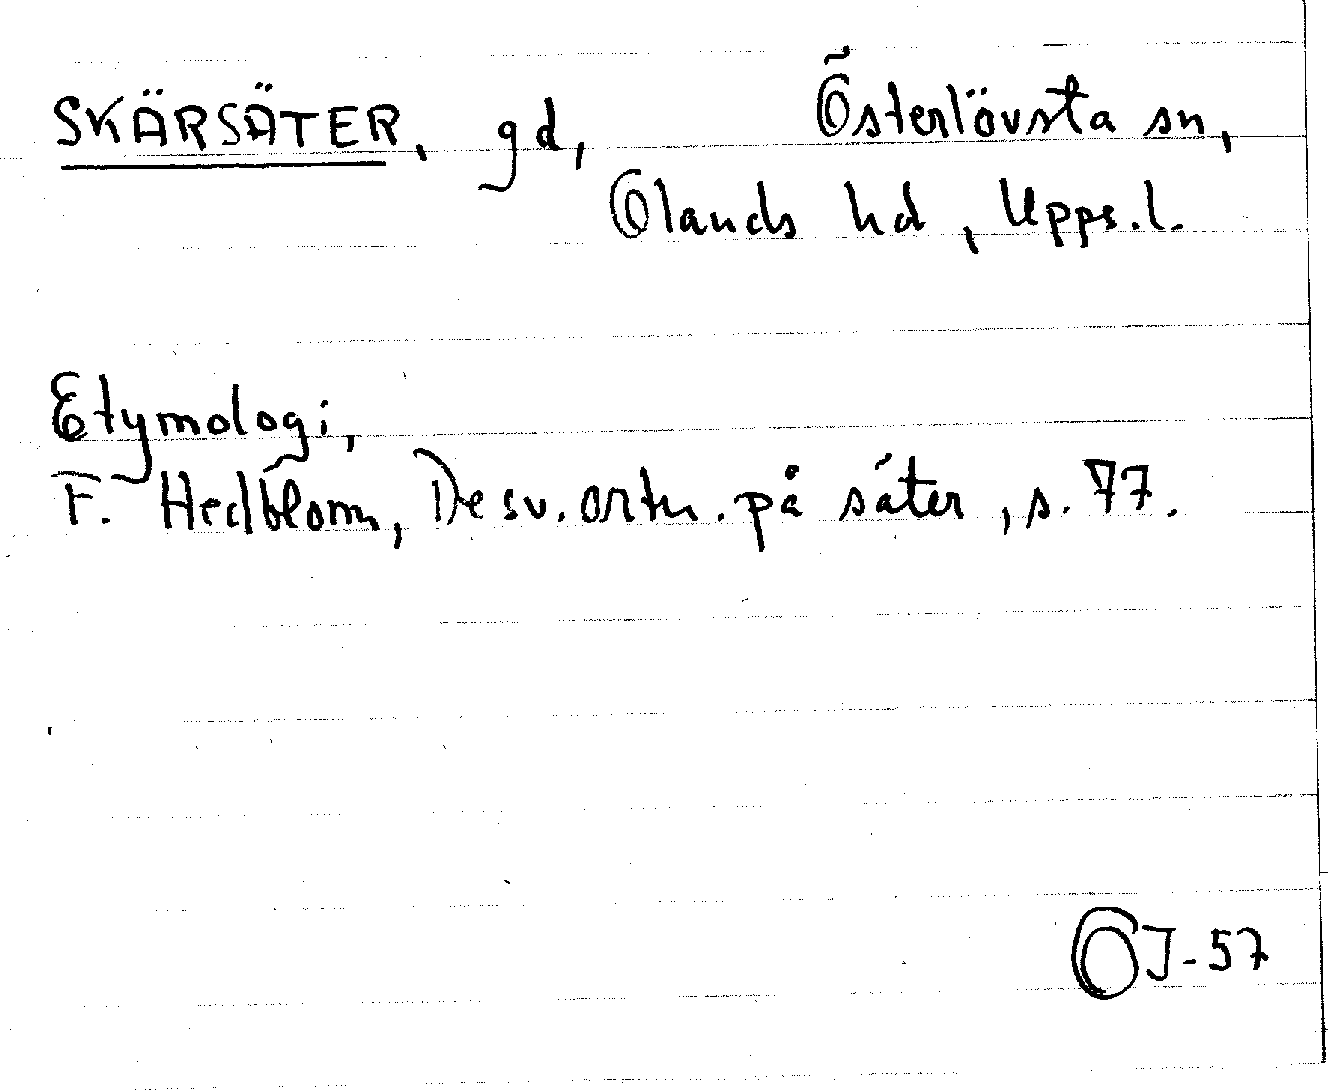 SKÄRSÄTER, gd, Österlövsta sn,
Olands hd, Upps.l.
Etymologi,
F. Hedblom, De sv. ortn. på säter, s. 77.
OJ-57